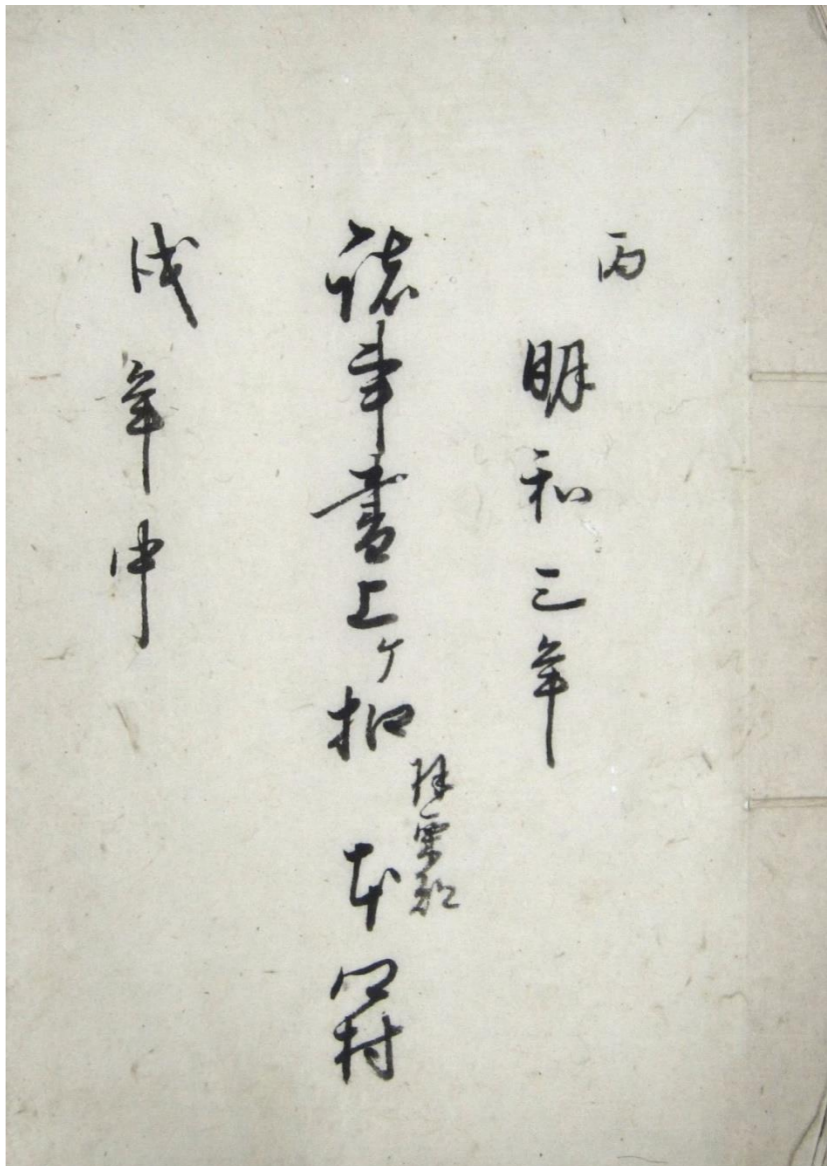 丙
明和三年
諸事書上ヶ扣
本田村
戌年中